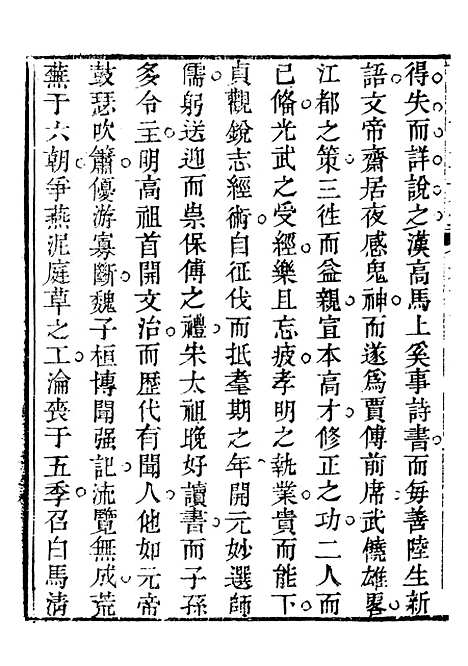 得失而詳說之漢高馬上奚事詩書而每善陸生新
語文帝齋居夜感鬼神而遂爲賈傅前席武饒雄畧
江都之策三徃而益親宣本高才修正之功二人而
已偹光武之受經樂且忘疲孝明之執業貴而能下
貞觀銳志經術自征伐而抵耄期之年開元妙選師
儒躬送迎而祟保傅之禮宋太祖晚好讀書而子孫
多令主明高祖首開文治而歴代有聞人他如元帝
鼓瑟吹簫優游寡斷魏子桓博聞强記流覽無成荒
蕪于六朝爭燕泥庭草之工淪喪于五季召白馬淸